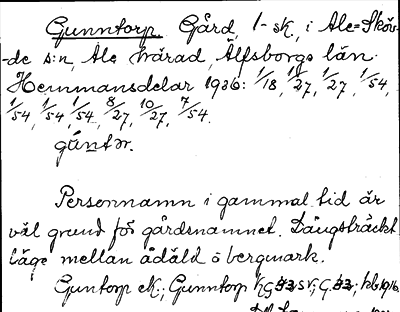 Gunntorp. Gård, 1-sk, i Ale=Sköv-
de s:n, Ale härad, Älfsborgs län.
Hemmansdelar 1936: 1/18, 1/27, 1/27, 1/54,
1/54, 1/54, 1/54, 8/27, 10/27, 7/54.
gúntər.
Personnamn i gammal tid är
väl grund för gårdsnamnet. Långsträckt
läge mellan ådäld o bergmark.
Guntorp eK.; Gunntorp